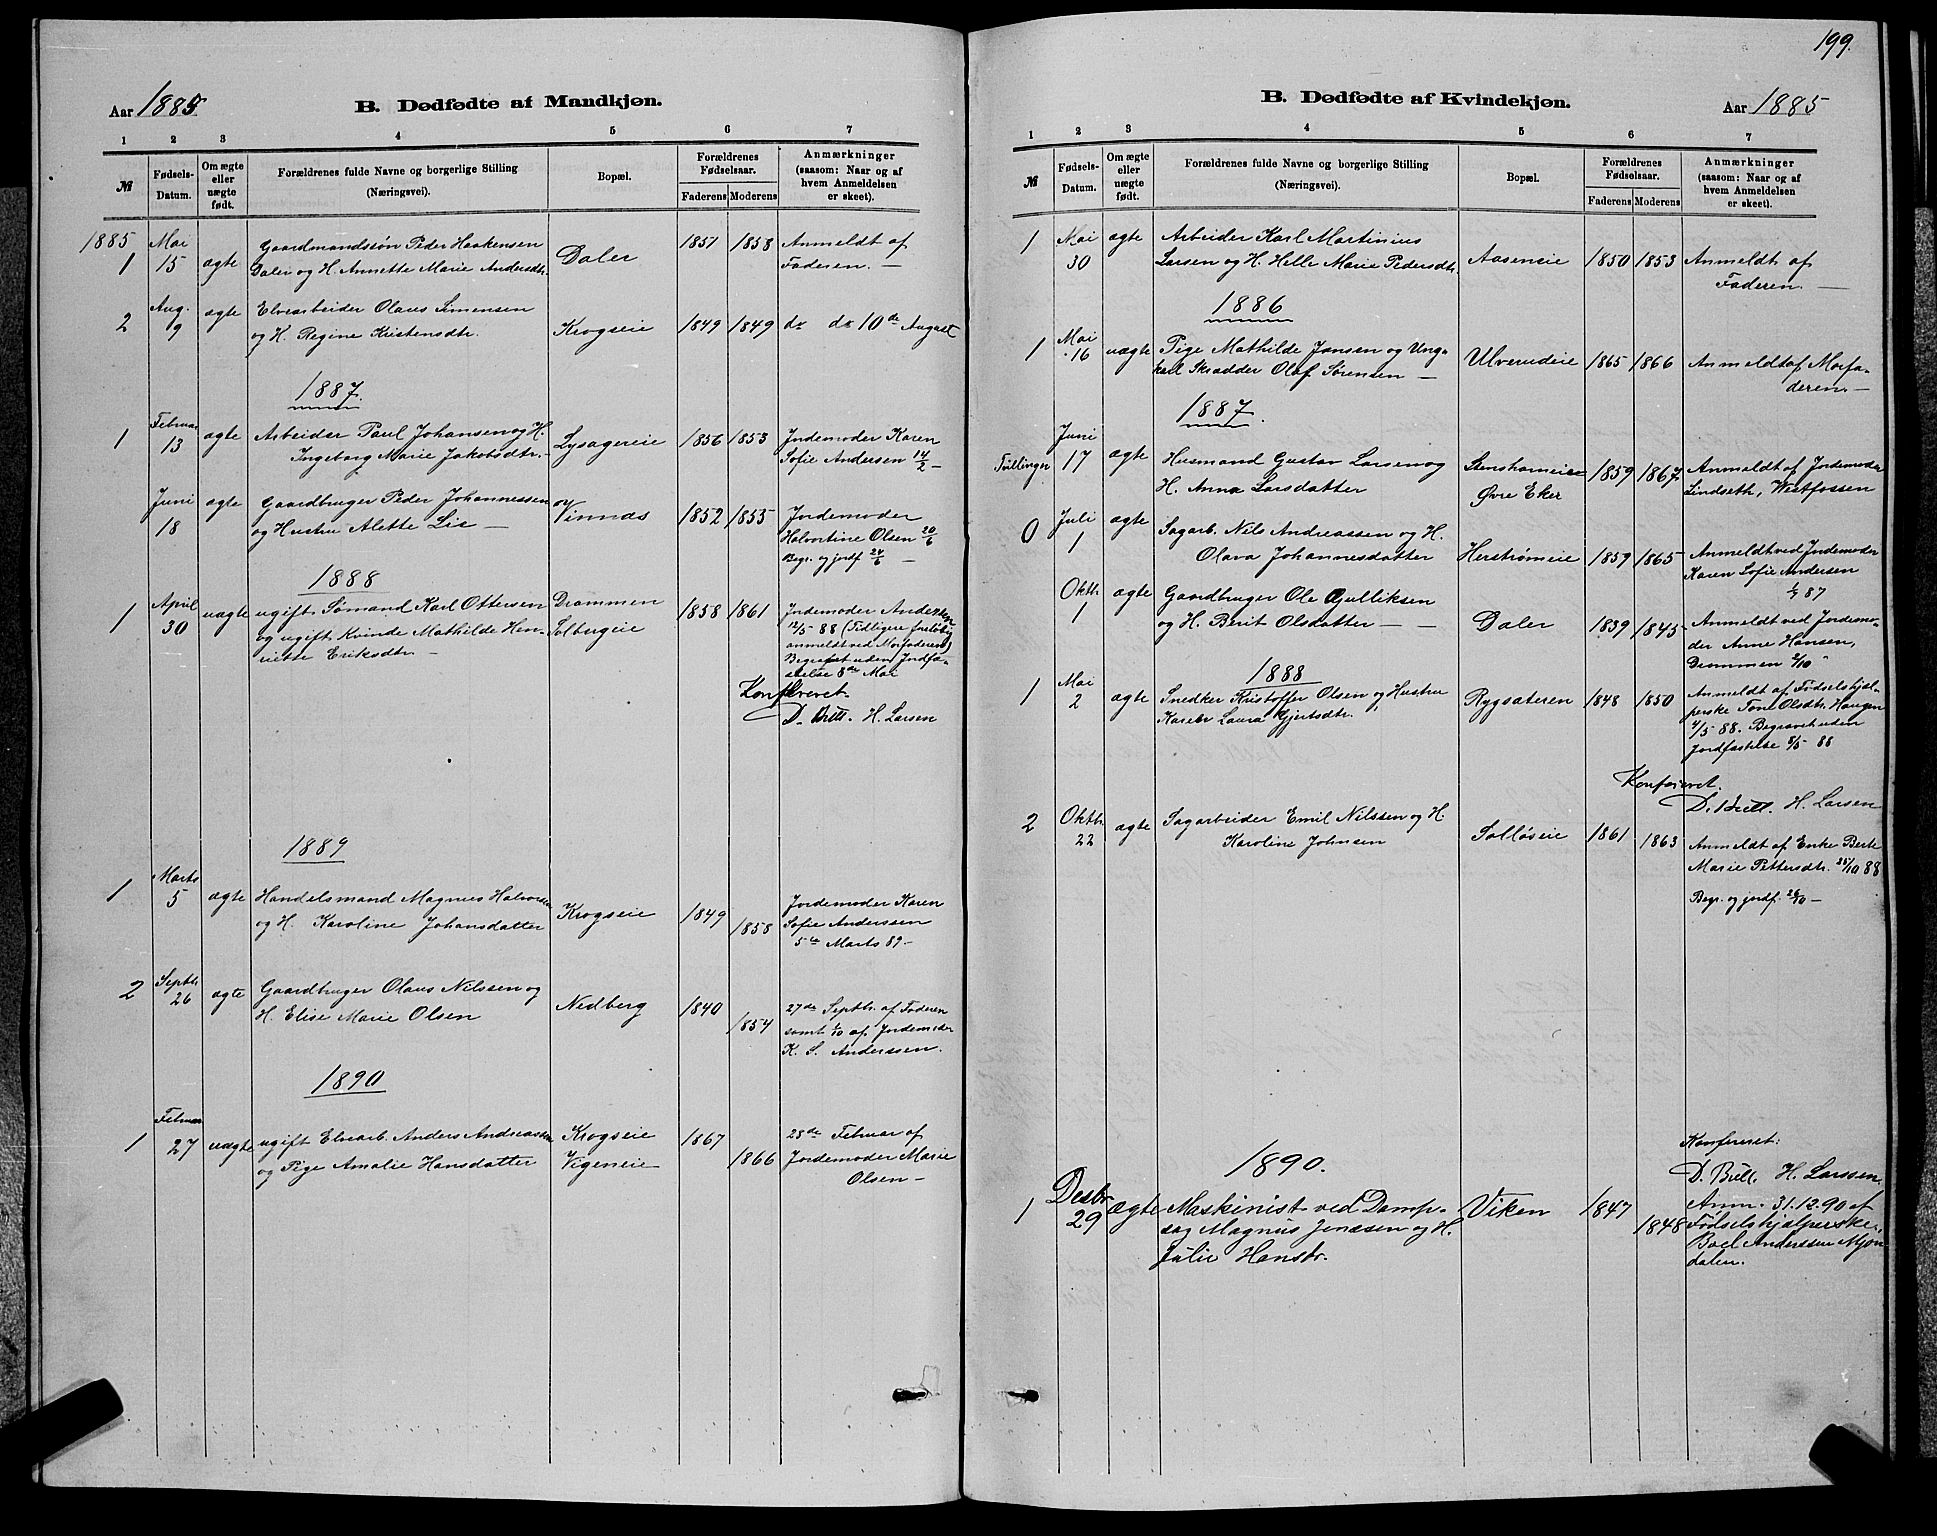 199.
Aar 1885
B. Dødfødte af Mandkjøn.
1 2 3 4 5 6 7
№
Fødsels-Datum.
Om ægte eller uægte født.
Forældrenes fulde Navne og borgerlige Stilling (Næringsvei).
Bopæl.
Forældrenes Fødselsaar.
Faderens Moderens
Anmærkninger (saasom: Naar og af hvem Anmeldelsen er skeet).
1885 Mai Gaardmandssøn Peder Haakensen 1857 1858 Anmeldt af
1 15 ægte Daler og H. Annette Marie Andersdtr. Daler Faderen. —
Aug. ægte Elvearbeider Olaus Simensen
2 9 og H. Regine Kristensdtr. Krogseie 1849 1849 do do 10de August
1887.
Februar
1 13 ægte Arbeider Paul Johansen og H. Lysagereie 1856 1853 Jordemoder Karen
Ingeborg Marie Jakobsdtr. — Sofie Andersen 14/2 —
Juni ægte Gaardbruger Peder Johannessen
18 og Hustru Alette Lie — Vinnæs 1852 1855 Jordemoder
Halvortine Olsen 20/6
Begr. og jordf. 24/6 —
1888
April
1 30 uægte ugift Sømand Karl Ottersen Drammen 1858 1861 Jordemoder
og ugift Kvinde Mathilde Hen- Solbergeie 12/5 88 (Tidligere foreløbig
riette Eriksdtr. — anmeldt ved Morfaderen)
Begravet uden Jordfæ-
stelse 8de Mai
Konfereret.
D. Bull. H. Larsen
1889
Marts
1 5 ægte Handelsmand Magnus Halvorsen Krogseie 1849 Jordemoder Karen
og H. Karoline Johansdatter 1858 Sofie Anderssen
5te Marts 89. —
Septbr.
2 26 ægte Gaardbruger Olaus Nilssen og
H. Elise Marie Olsen Nedberg 1840 1854 27de Septbr. af Faderen
samt 1/10 af Jordemoder
K. S. Anderssen.
1890
Februar
1 27 uægte ugift Elvearb. Anders Andreassen Krogseie 1867 28de Februar af
og Pige Amalie Hansdatter Vigeneie 1866 Jordemoder Marie
Olsen —
B. Dødfødte af Kvindekjøn.
Aar 1885
1 2 3 4 5 6 7
№
Fødsels-Datum.
Om ægte eller uægte født.
Forældrenes fulde Navne og borgerlige Stilling (Næringsvei).
Bopæl.
Forældrenes Fødselsaar.
Faderens Moderens
Anmærkninger (saasom: Naar og af hvem Anmeldelsen er skeet).
1 Mai ægte Arbeider Karl Martinius
30 Larsen og H. Helle Marie Pedersdtr. Aaseneie 1850 1853 Anmeldt af
Faderen. —
1886
1 Mai
16 uægte Pige Mathilde Jansen og Ung- Ulverudeie 1865 1866 Anmeldt af Morfa-
karl Skrædder Olaf Sørensen — deren. —
1887.
Juni
Tvillinger 17 ægte Husmand Gustav Larsen og Stenshorneie 1859 1867 Anmeldt af Jordemoder
H. Anna Larsdatter Øvre Eker Lindseth, Westfossen
0 Juli ægte Sagarb. Nils Andreassen og H.
1 Olava Johannesdatter Herstrømeie 1859 1865 Anmeldt ved Jordemoder
Karen Sofie Andersen
87
Oktbr. ægte Gaardbruger Ole Gulliksen
1 og H. Berit Olsdatter — — Daler 1839 1845 Anmeldt ved Jordemo-
der Anne Hansen,
Drammen 2/10
1888
1 Mai
2 ægte Snedker Kristoffer Olsen og Hustru Rygsæteren 1848 1850 Anmeldt af Fødselshjæl-
Laura Gjertsdtr. perske Tone Olsdtr. Haugen
7/5 88. Begravet uden
Jordfæstelse 8/5 88
Konfereret.
D. Bull. H. Larsen
2 Oktbr.
22 ægte Sagarbeider Emil Nilssen og H. Solløseie 1861 1863 Anmeldt af Enke Berte
Karoline Johnsen Marie Pettersdtr. 25/10 88
Begr. og jordf. 26/10 —
Konfereret:
D. Bull. H. Larssen
1890.
Desbr
1 29 ægte Maskinist ved Damp- Viken 1847 Anm. 31.12.90 af
sag Magnus Jonassen og H. 1848 Fødselshjælperske
Julie Hansdtr. Boel Anderssen Mjøn-
dalen.